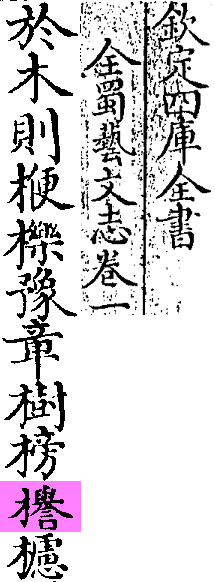 欽定四庫全書
全蜀藝文志卷一
於木則楩櫟豫章樹榜櫖